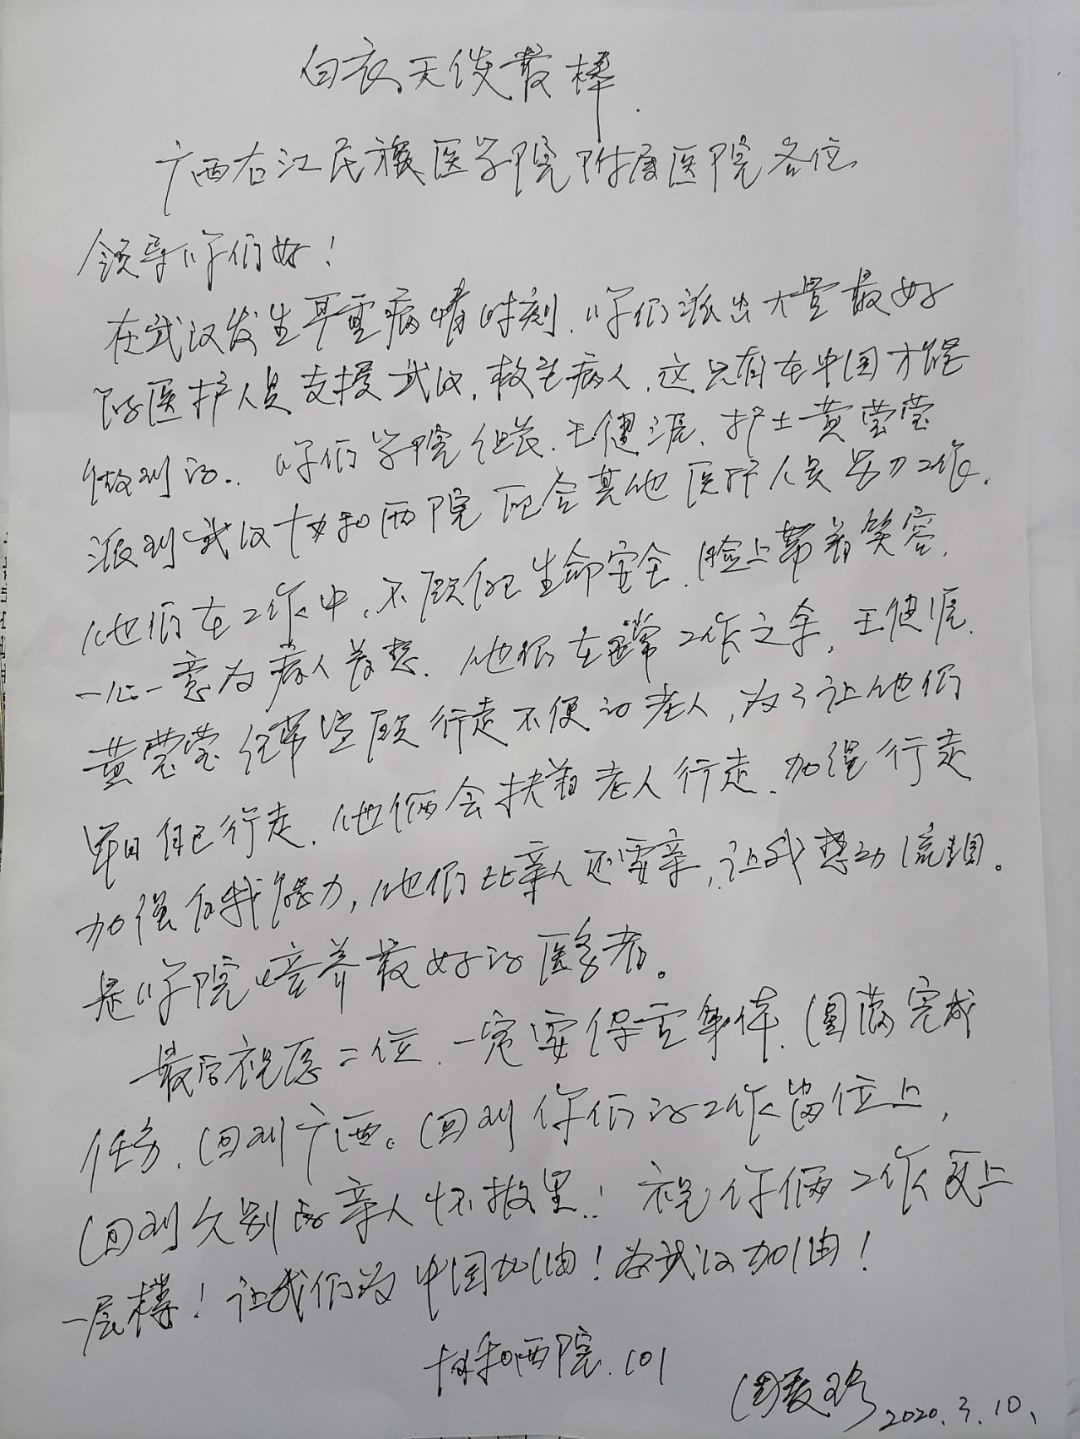 白衣天使最棒
广西右江民族医学院附属医院各位
领导你们好！
在武汉发生严重病情时刻.你们派出大量最好
的医护人员支援武汉,救治病人.这只有在中国才能
做到的..你们学院组长.王健派.护士黄莹莹
派到武汉协和西院配合其他医护人员努力工作.
他们在工作中,不顾自己生命安全.脸上带着笑容.
一心一意为病人着想.他俩在正常工作之余,王健派.
黄莹莹经常照顾行走不便的老人,为了让他们
早日自己行走.他俩会扶着老人行走.加强行走
加强自我能力,他们比亲人还要亲,让我感动流泪。
是你学院培养最好的医务者。
最后祝愿二位.一定要保重身体.圆满完成
任务.回到广西。回到你们的工作岗位上,
回到久别的亲人怀抱里.!祝你俩工作更上
一层楼!让我们为中国加油!为武汉加油!
协和西院.101
2020.3.10.